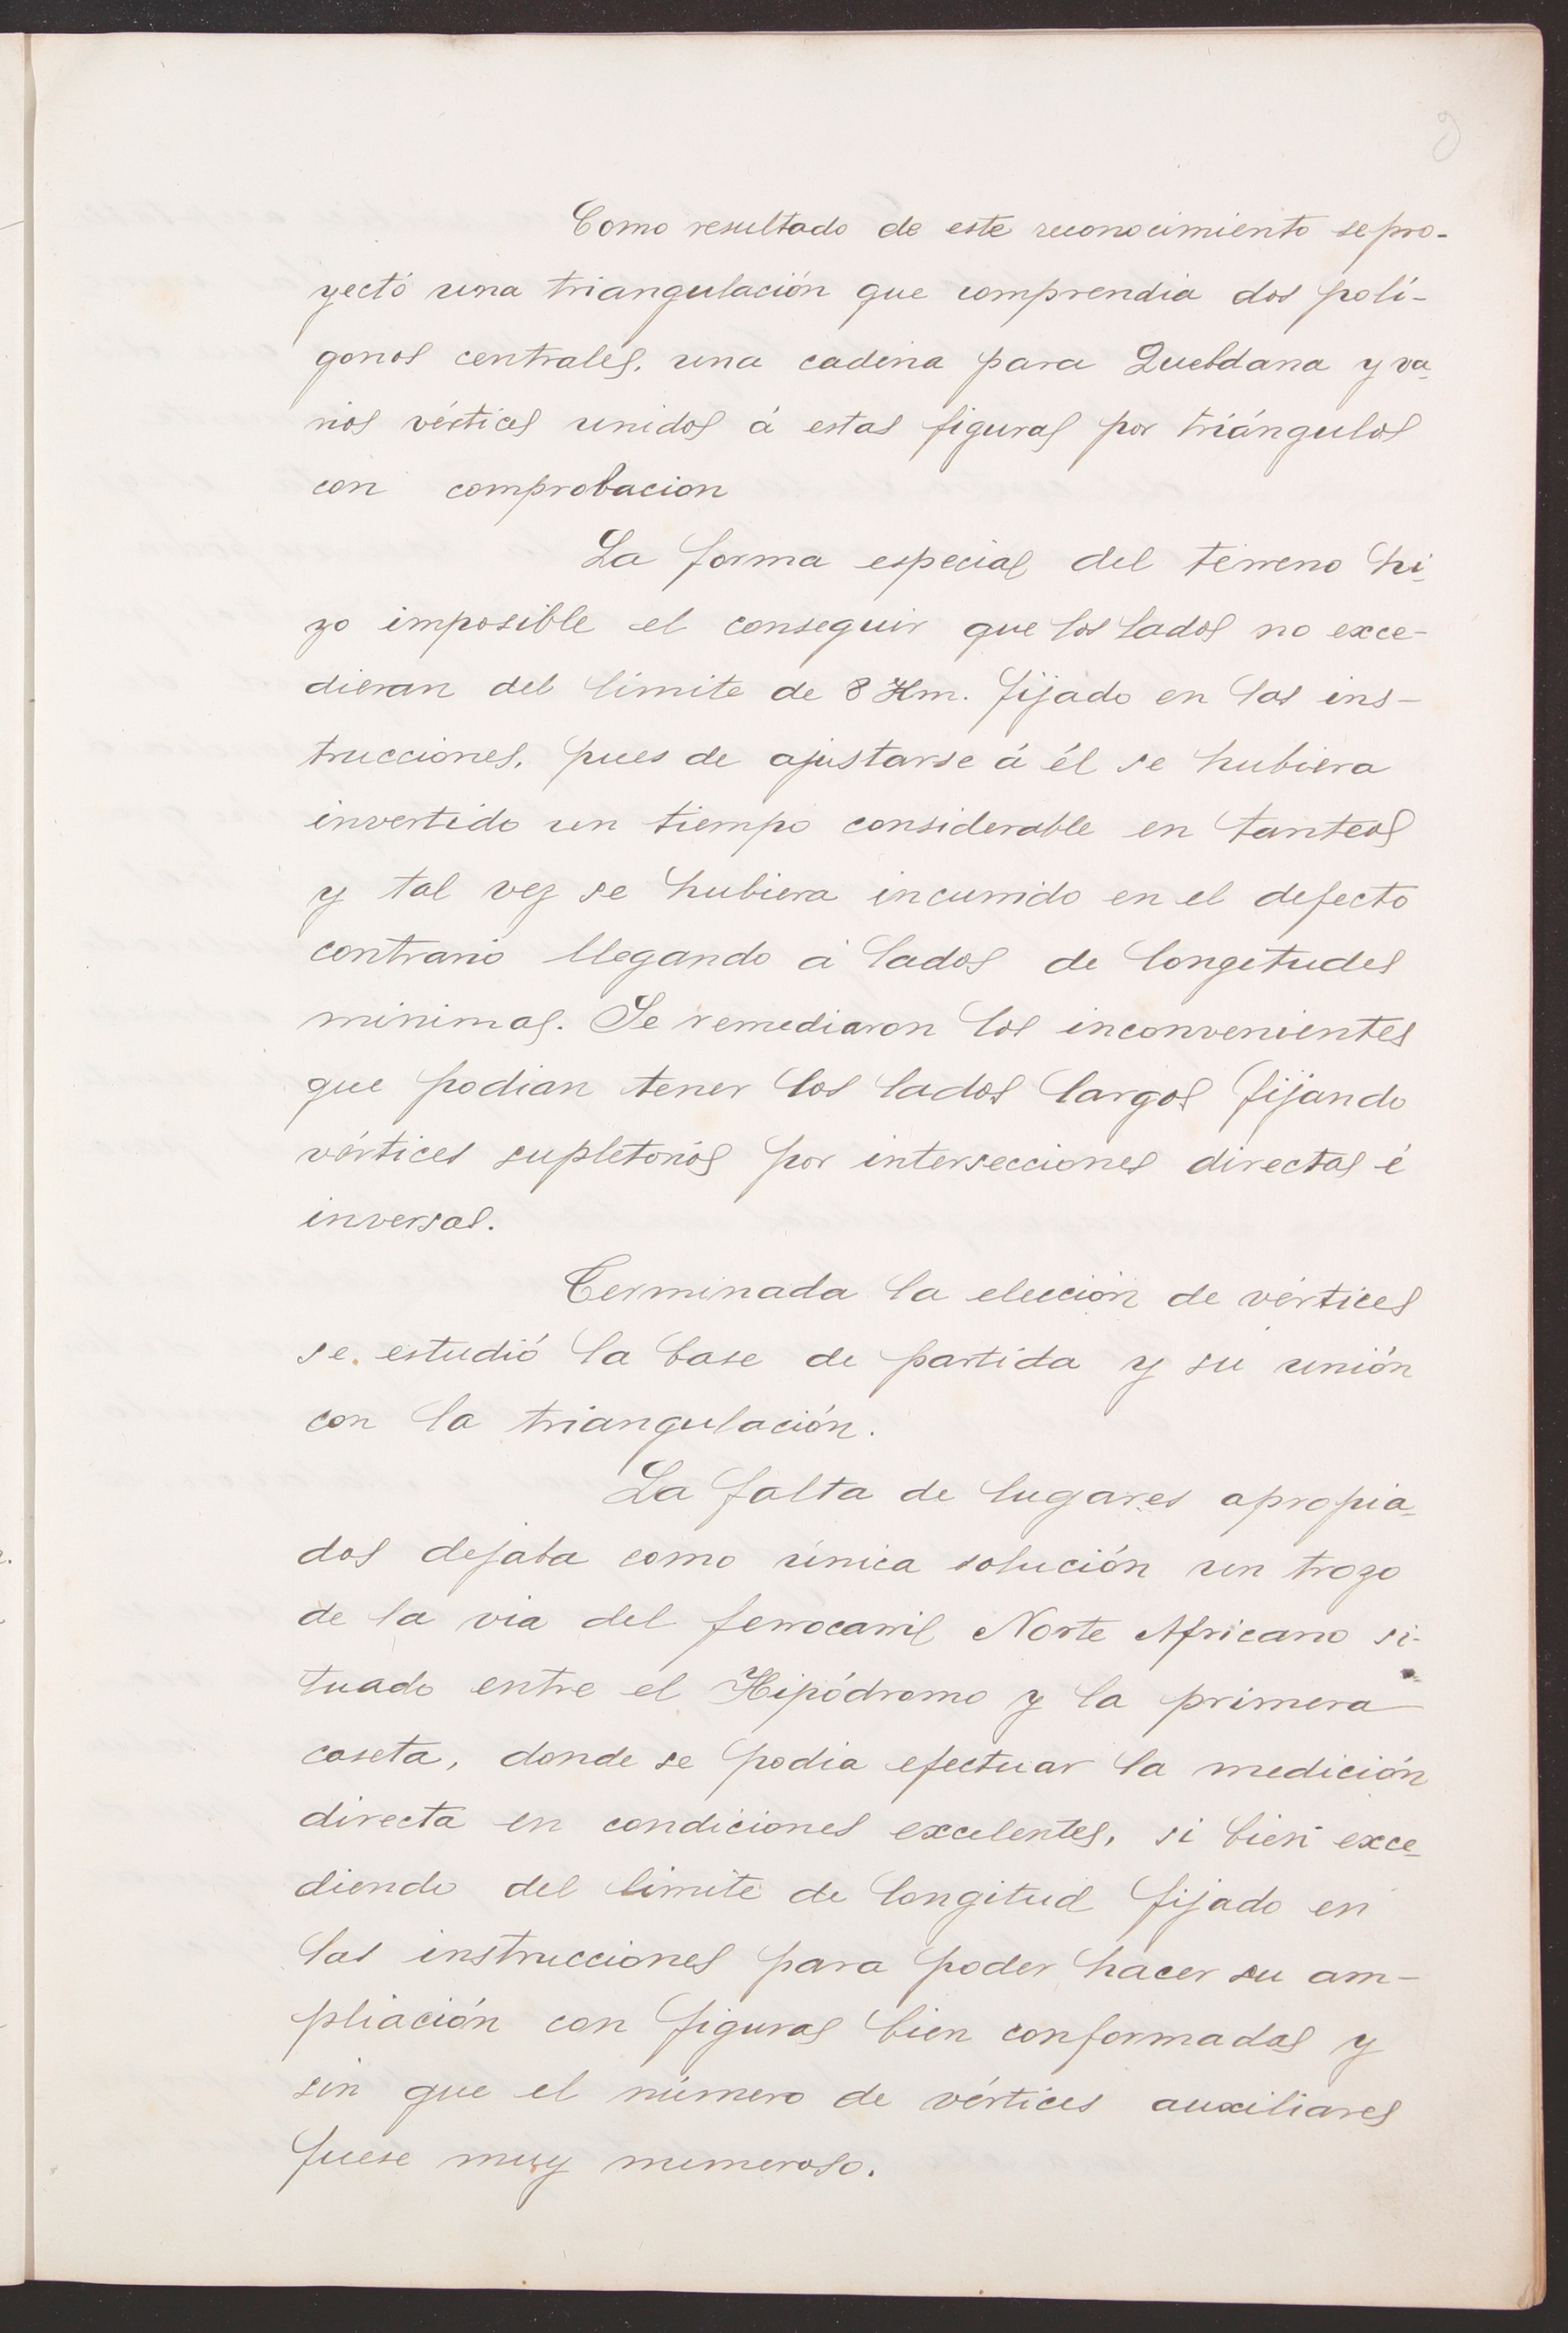 Como resultado de este reconocimiento se pro-
yectó una triangulación que comprendia dos polí-
gonos centrales, una cadena para Quebdana y va-
rios vértices unidos á estas figuras por triángulos
con comprobacion
La forma especial del terreno hi-
zo imposible el conseguir que los lados no exce-
dieran del límite de 8 Km. fijado en las ins-
trucciones, pues de ajustarse á él se hubiera
invertido un tiempo considerable en tanteos
y tal vez se hubiera incurrido en el defecto
contrario llegando á lados de longitudes
minimas. Se remediaron los inconvenientes
que podian tener los lados largos fijando
vértices supletorios por intersecciones directas é
inversas.
Terminada la elección de vértices
se estudió la base de partida y su unión
con la triangulación.
La falta de lugares apropia-
dos dejaba como única solución un trozo
de la via del ferrocarril Norte Africano si-
tuado entre el Hipódromo y la primera
caseta, donde se podia efectuar la medición
directa en condiciones excelentes, si bien exce-
diendo del limite de longitud fijado en
las instrucciones para poder hacer su am-
pliación con figuras bien conformadas y
sin que el número de vértices auxiliares
fuese muy numeroso.